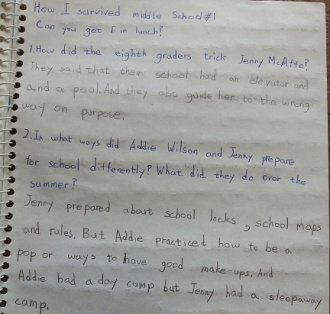 How I survived middle School #1
Can you get F in lunch?
1. How did the eighth graders trick Jenny McAfee?
They said that their school had an elevator and
and a pool. And they also guide her to the wrong
way on purpose.
2. In what ways did Addie Wilson and Jenny prepare
for school differently? What did they do over the
summer?
Jenny prepared about school locks, school maps
and rules. But Addie practiced how to be a
pop or ways to have good make-ups. And
Addie had a day camp but Jenny had a sleepaway
camp.